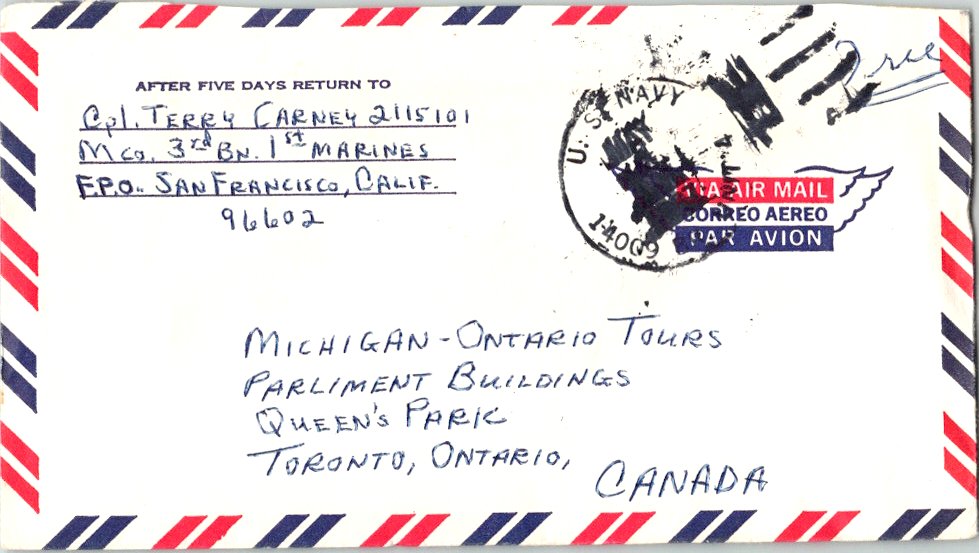 AFTER FIVE DAYS RETURN TO
Cpl. TERRY CARNEY 2115101
M Co. 3rd BN. 1st MARINES
F.P.O. SAN FRANCISCO, CALIF.
96602
Free
U.S. NAVY
MAY
14009
VIA AIR MAIL
CORREO AEREO
PAR AVION
MICHIGAN-ONTARIO TOURS
PARLIMENT BUILDINGS
QUEEN'S PARK
TORONTO, ONTARIO,
CANADA